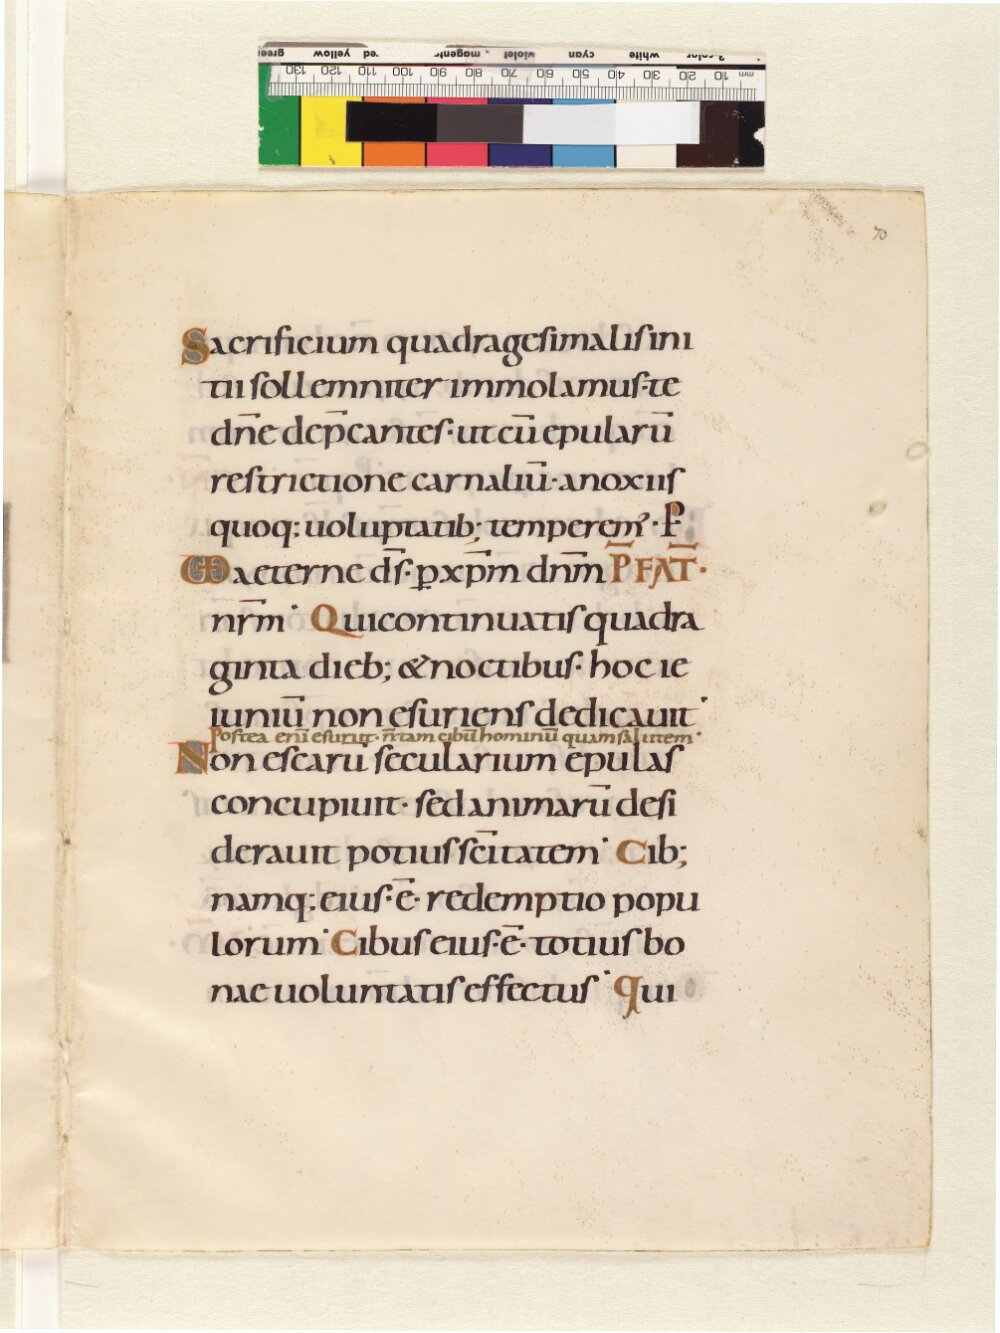 green yellow red magenta violet cyan white 3-color
mm 10 20 30 40 50 60 70 80 90 100 110 120 130
70
Sacrificium quadragesimalis ini
tii sollemniter immolamus· te
dn̄e dep̄cantes· ut cū epularū
restrictione carnaliū· anoxiis
quoq; uoluptatib; temperem᷒· P
VD aeterne ds̄· p̱ xp̄m dn̄m P̄FAT̄·
nr̄m· Qui continuatis quadra
ginta dieb; & noctibus· hoc ie
iuniū non esuriens dedicauit·
Postea eni esuriit· n̄ tam cibū hominū quam salutem·
Non escarū secularium epulas
concupiuit· sed animarū desi
derauit potius sc̄itatem· Cib;
namq; eius· ē· redemptio popu
lorum· Cibus eius· ē· totius bo
nae uoluntatis effectus· Qui